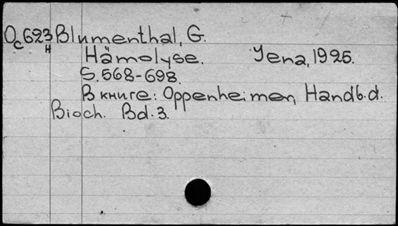 Oc623 Blumenthal, G.
н Hämolyse. Jena, 1925.
S. 568-698.
В книге: Oppenheimen, Handb. d.
Bioch. Bd. 3.